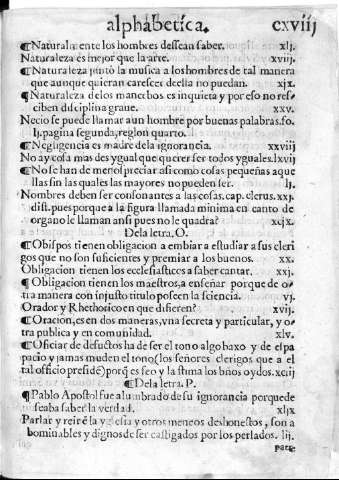 alphabetica. cxviij
¶Naturalmente los hombres dessean saber. xlj.
Naturaleza es mejor que la arte. xviij.
¶Naturaleza junto la musica a los hombres de tal manera
que aunque quieran carescer della no puedan. xjx.
¶Naturaleza delos mancebos es inquieta y por eso no res-
ciben disciplina graue. xxv.
Necio se puede llamar aun hombre por buenas palabras. fo.
lj. pagina segunda, reglon quarto.
¶Negligencia es madre dela ignorancia. xxviij
No ay cosa mas desygual que querer ser todos yguales. lxvij
¶No se han de menospreciar asi como cosas pequeñas aque
llas sin las quales las mayores no pueden ser. lj.
Nombres deben ser consonantes a las cosas. cap. clerus. xxj.
dist. pues porque a la figura llamada minima en canto de
organo le llaman ansi pues no le quadra? xcjx.
De la letra. O.
¶Obispos tienen obligacion a embiar a estudiar a sus cleri
gos que no son suficientes y premiar a los buenos. xx.
Obligacion tienen los ecclesiasticos a saber cantar. xxj.
¶Obligacion tienen los maestros, a enseñar porque de o-
tra manera con injusto titulo posseen la sciencia. vj.
Orador y Rhethorico en que difieren? xvij.
¶Oracion, es en dos maneras, vna secreta y particular, y o-
tra publica y en comunidad. xlv.
¶Oficiar de defuctos ha de ser el tono algo baxo y de espa
pacio y jamas muden el tono (los señores clerigos que a el
tal officio preside) porq̃ es feo y la stima los bños oydos. xciij
¶De la letra. P.
¶Pablo Apostol fue alumbrado de su ignorancia porque de
seaba saber la verdad. xljx
Parlar y reir ẽ la yglesia y otros meneos deshonestos, son a
bominables y dignos de ser castigados por los perlados. lij.
parte